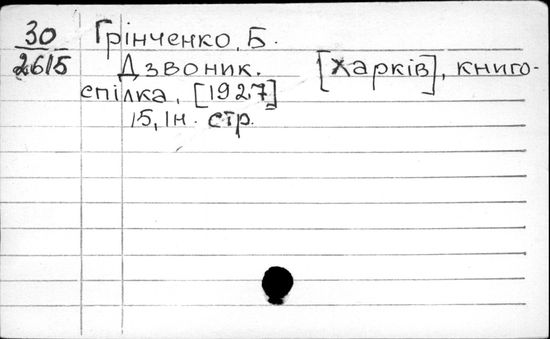 30 Грінченко, Б.
2615 Дзвоник. [Харків], книго-
спілка, [1927]
15, 1н. стр.